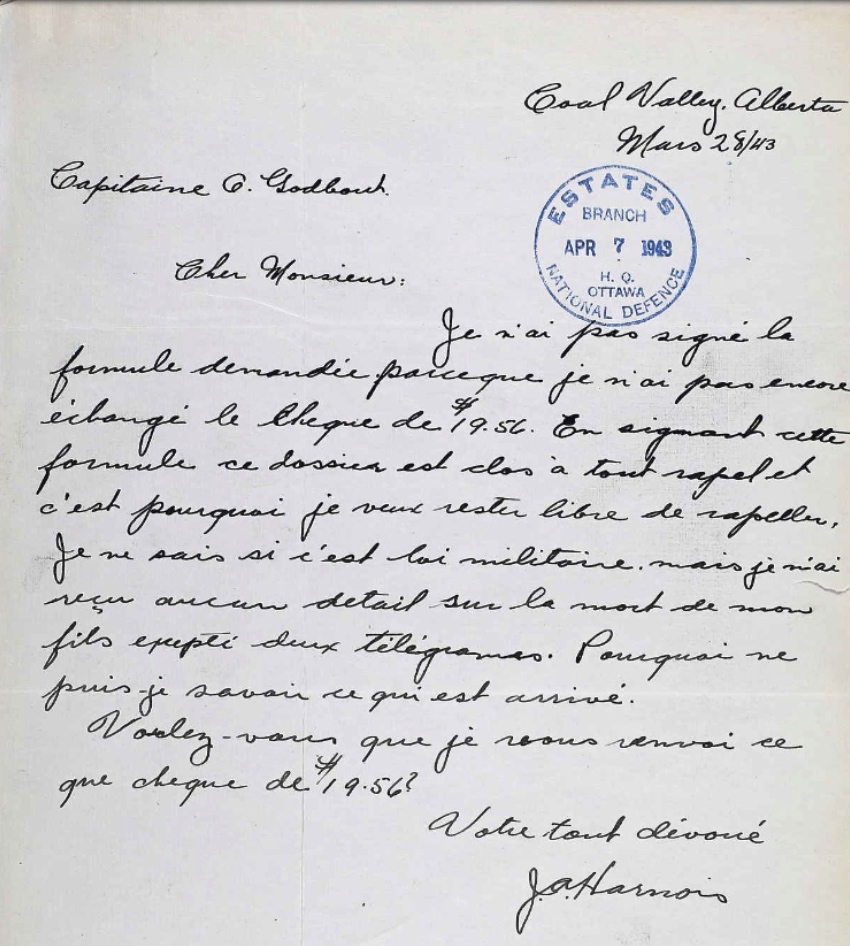 Coal Valley, Alberta
Mars 28/43
Capitaine G. Godbout.
ESTATES
BRANCH
APR 7 1943
H. Q.
OTTAWA
NATIONAL DEFENCE
Cher Monsieur:
Je n'ai pas signé la
formule demandée parceque je n'ai pas encore
échangé le cheque de $19.56. En signant cette
formule ce dossier est clos à tout rapel et
c'est pourquoi je veux rester libre de rapeller.
Je ne sais si c'est loi militaire. mais je n'ai
reçu aucun detail sur la mort de mon
fils exepté deux télégrames. Pourquoi ne
puis-je savoir ce qui est arrivé.
Voulez-vous que je vous renvoi ce
que cheque de $19.56?
Votre tout dévoué
J.A. Harnois